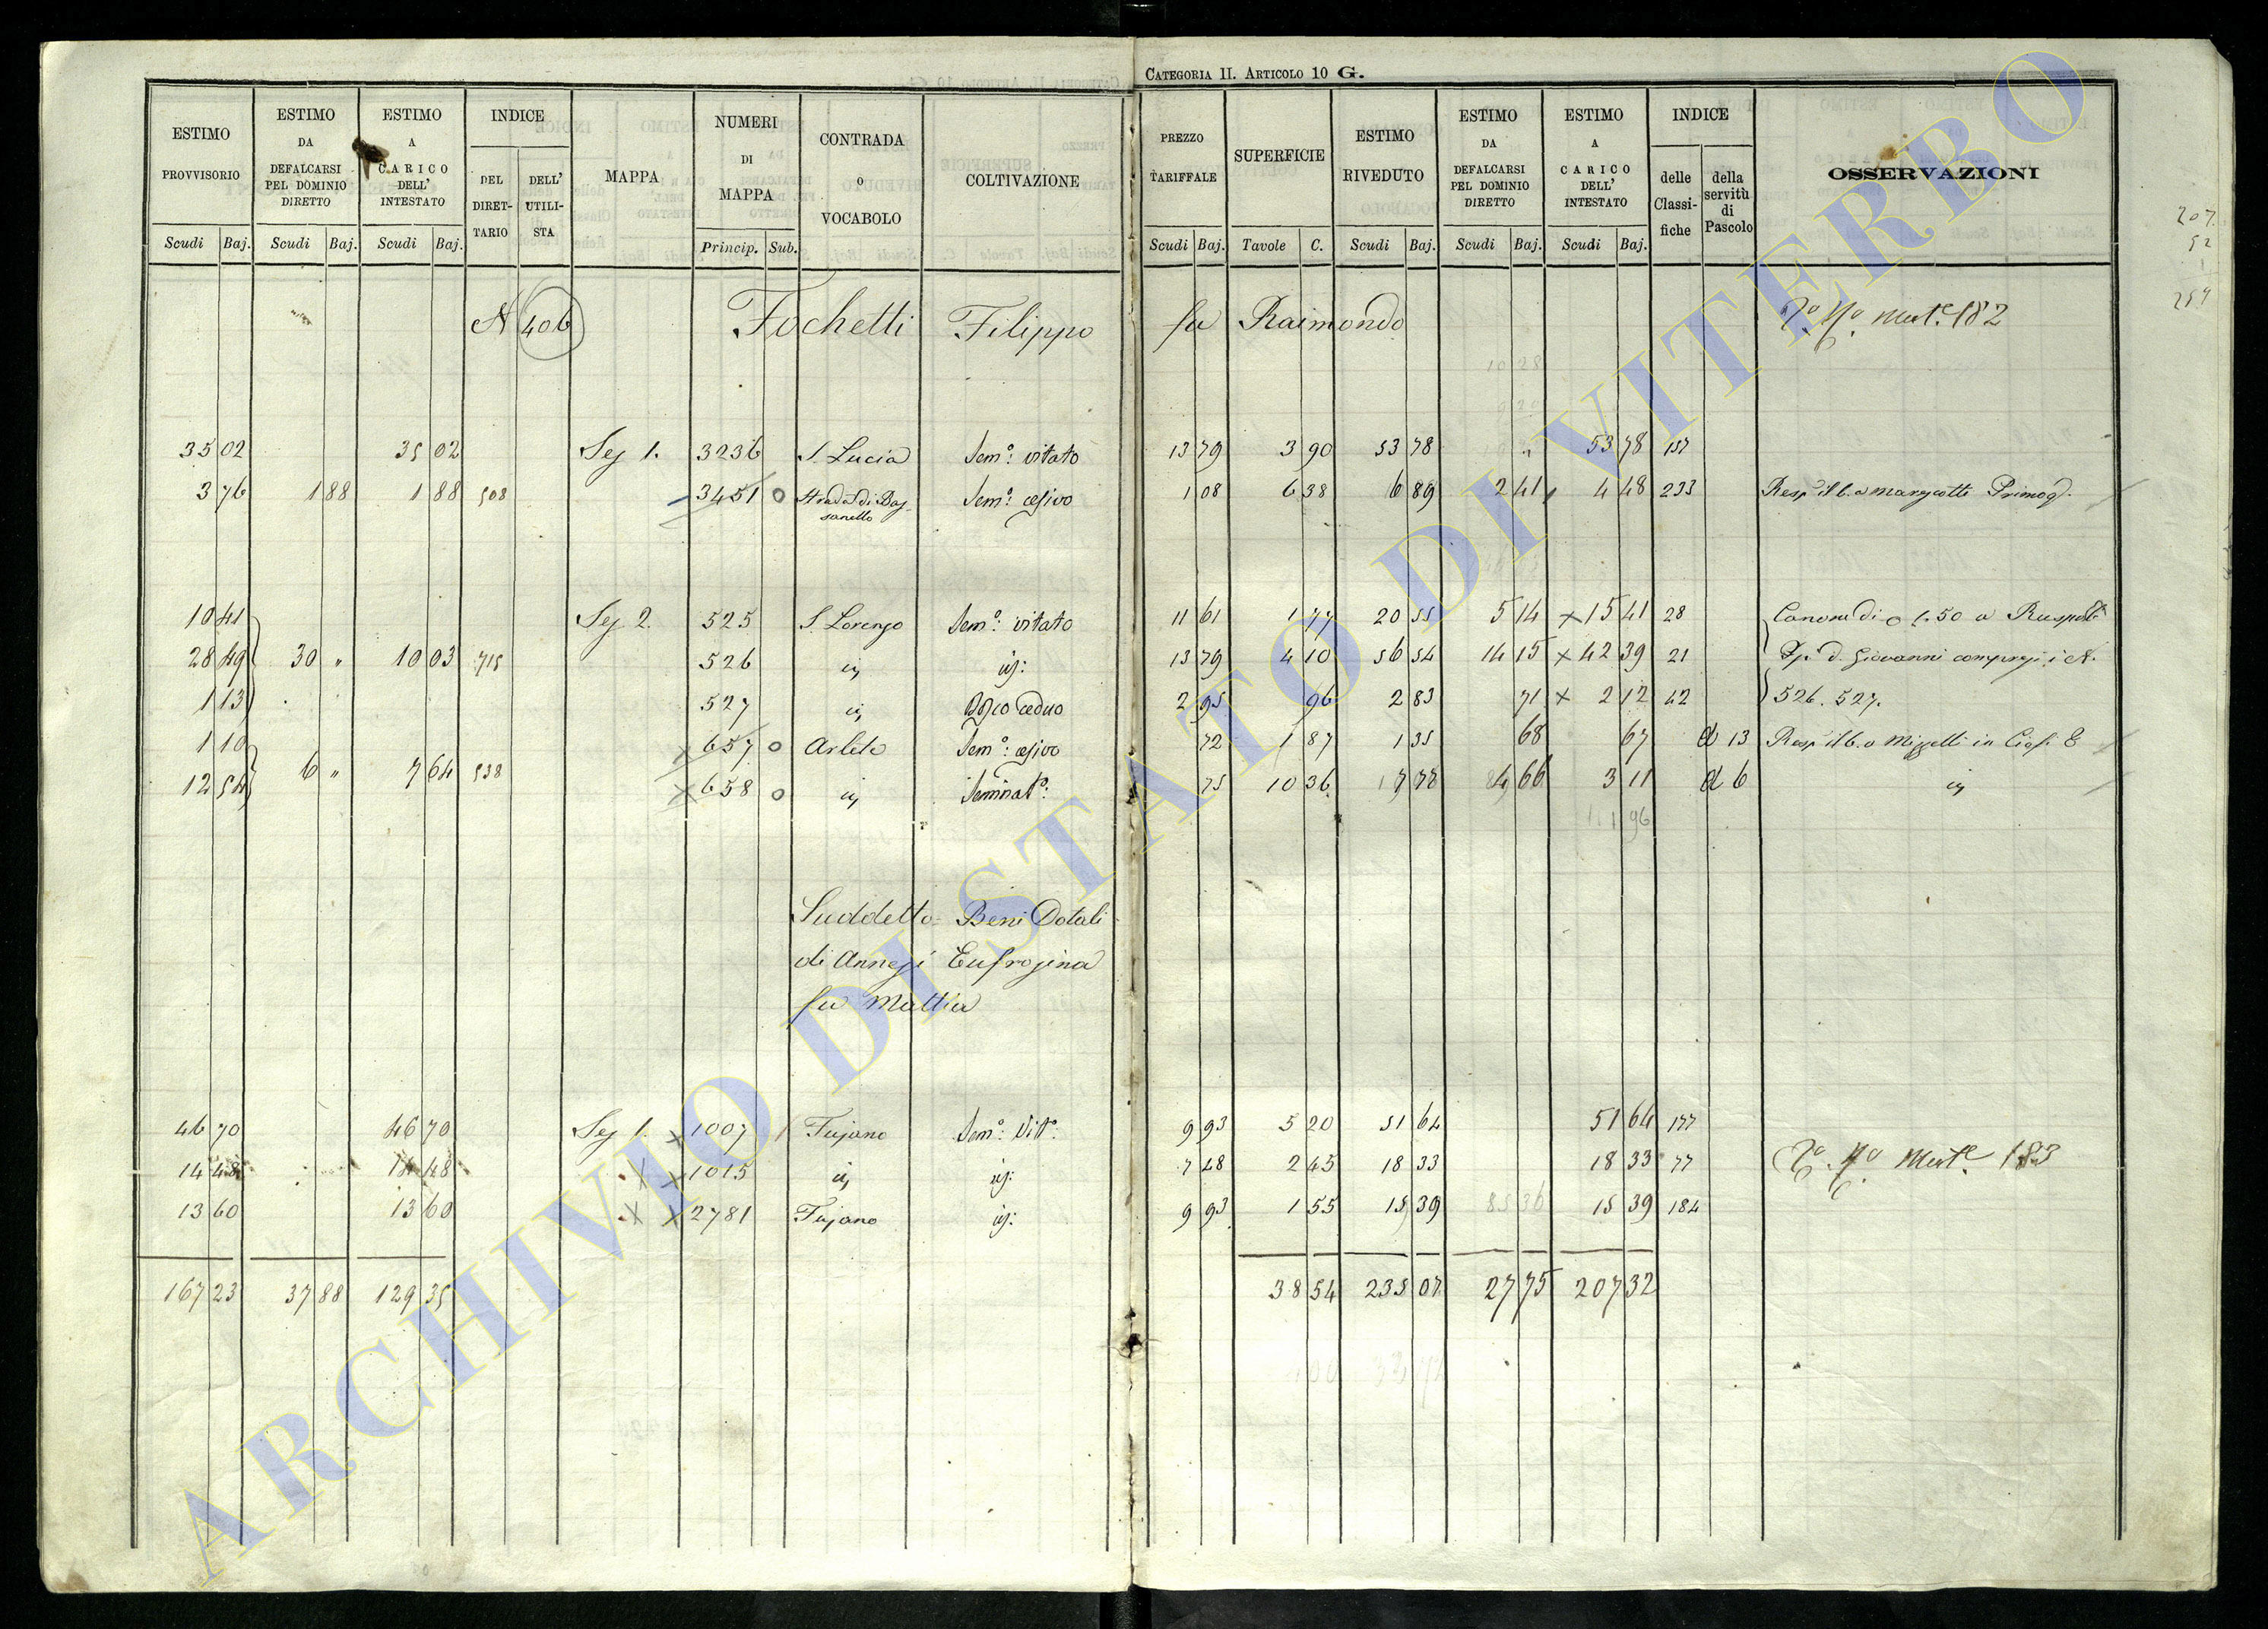 CATEGORIA II. ARTICOLO 10 G.
ESTIMO PROVVISORIO Scudi Baj.
ESTIMO DA DEFALCARSI PEL DOMINIO DIRETTO Scudi Baj.
ESTIMO A CARICO DELL' INTESTATO Scudi Baj.
INDICE DEL DIRETTARIO DELL' UTILISTA
MAPPA
NUMERI DI MAPPA Princip. Sub.
CONTRADA o VOCABOLO
COLTIVAZIONE
PREZZO TARIFFALE Scudi Baj.
SUPERFICIE Tavole C.
ESTIMO RIVEDUTO Scudi Baj.
ESTIMO DA DEFALCARSI PEL DOMINIO DIRETTO Scudi Baj.
ESTIMO A CARICO DELL' INTESTATO Scudi Baj.
INDICE delle Classifiche della servitù di Pascolo
OSSERVAZIONI
207
52
1
259
N 406 Fochetti Filippo fu Raimondo 182
35 02 35 02 Sez 1. 3236 S. Lucia Sem.º vitato 13 79 3 90 53 78 53 78 157
3 76 1 88 1 88 508 3451 o Strada di Bassanello Sem.º olivo 1 08 6 38 6 89 2 41 4 48 233 Resp
10 41 Sez 2. 525 S. Lorenzo Sem.º vitato 11 61 1 77 20 55 5 14 x 15 41 28 Canone di
28 49 30 " 10 03 715 526 13 79 4 10 56 54 14 15 x 42 39 21 d. Giovanni
1 13 527 ceduo 2 95 96 2 83 71 x 2 12 42 526. 527.
1 10 x 657 o Sem.º olivo 72 1 87 1 35 68 67 d 13
12 54 6 " 7 64 538 x 658 o Seminatº. 75 10 36 7 77 4 66 3 11 d 6
111 96
Suddetto = Beni Dotali
di Annesi Eufrosina
fu Mattia
46 70 46 70 Sez 1. x 1007 Fujano Sem.º Vitº. 9 93 5 20 51 64 51 64 177
14 48 14 48 x x 1015 7 48 2 45 18 33 18 33 77 183
13 60 13 60 x x 2781 Fujano 9 93 1 55 15 39 15 39 184
167 23 37 88 129 35 38 54 235 07 27 75 207 32
ARCHIVIO DI STATO DI VITERBO